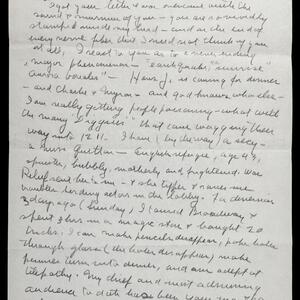 I got your letter & was overcome with the
sound & murmur of you - you are so
stamped inside my head - and in the ends of
every nerve fiber that I need not think of you
at all, I react to you as to a new,
major phenomenon - "earthquake", "sunrise"
"aurora borealis" - is coming for dinner
- and Charles & Myron - and god knows who else -
I am really getting profile poisoning - what with
the many "Biggies" that come their
way into 1211. I have (by the way) a secy -
a Miss - English refugee, age 49,
spinster, bubbly, motherly and frightened. Was
Relief sent her to me - & she types & runs me
hording actors in the lobby. For
3 days ago (Sunday) I Broadway &
spent 3 hrs in a magic store & bought 20
tricks. I can make pencils disappear, poke holes
through glass (the holes disappear), make
pennies turn into dimes, and am adept at
telepathy. My chief and most admiring
audience to date has been you